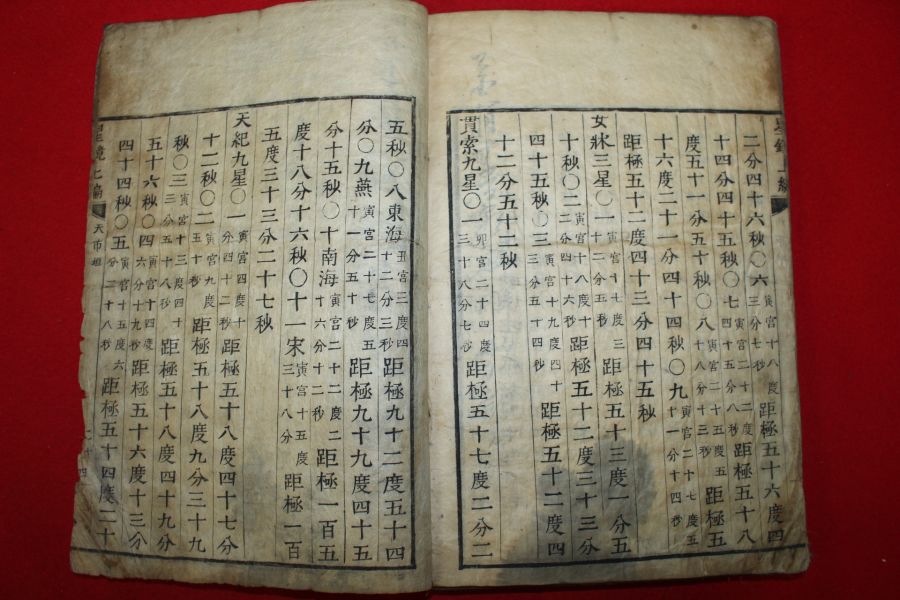 星鏡上編
二分四十六秒〇六寅宮十八度三分七秒距極五十六度四
十四分四十五秒〇七寅宮二十度四十五分八秒距極五十八
度五十一分五十秒〇八寅宮二十五度五十八分十三秒距極五
十六度二十一分四十四秒〇九寅宮二十七度五十一分十四秒
距極五十二度四十三分四十五秒
女牀三星〇一寅宮十七度三十二分五秒距極五十三度一分五
十秒〇二寅宮十八度十二分四十秒距極五十二度三十三分
四十五秒〇三寅宮二十度四十三分五十四秒距極五十二度四
十二分五十二秒
貫索九星〇一卯宮二十四度三十八分七秒距極五十七度二分二
五秒〇八東海丑宮三度四十二分三秒距極九十二度五十四
分〇九燕寅宮二十七度五十一分五十秒距極九十九度四十五
分十五秒〇十南海寅宮二十二度二十六分十二秒距極一百五
度十八分十六秒〇十一宋寅宮十五度三十八分距極一百
五度三十三分二十七秒
天紀九星〇一寅宮四度十分四十二秒距極五十八度四十七分
十二秒〇二寅宮九度五十秒距極五十八度九分三十九
秒〇三寅宮十三度四十三分五十八秒距極五十八度四十九分
五十六秒〇四寅宮十四度六分十九秒距極五十六度十三分
四十四秒〇五寅宮十五度六分三十八秒距極五十四度二十
星鏡上編 天市垣